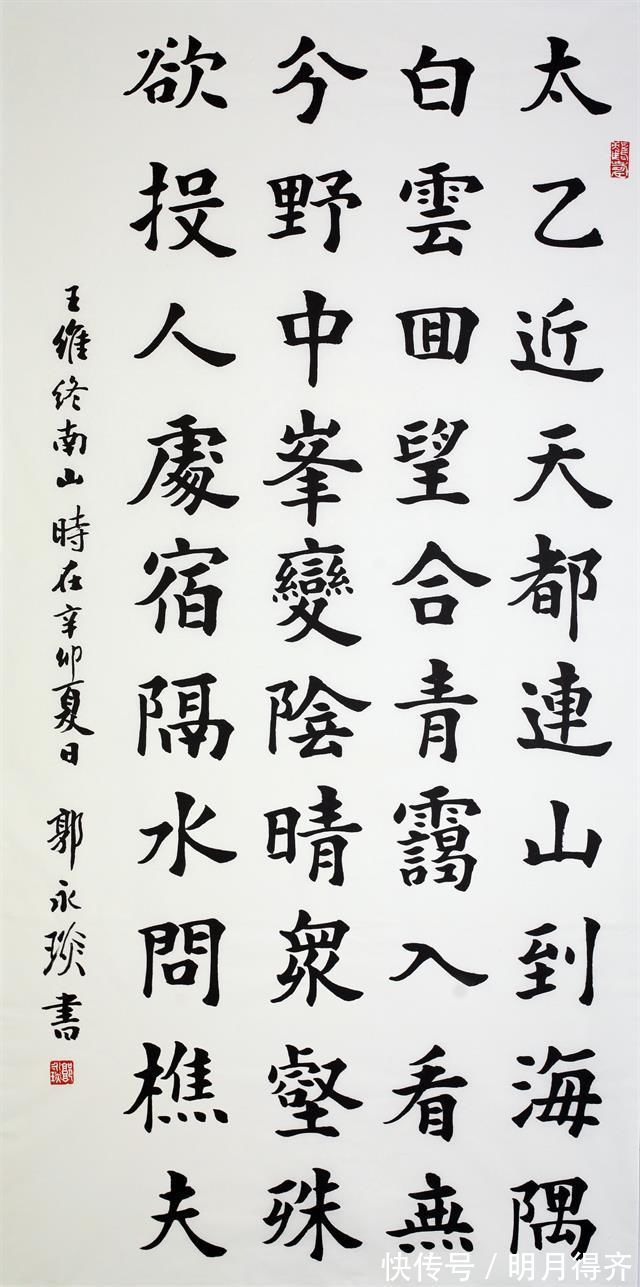 太乙近天都連山到海隅
白雲回望合青靄入看無
分野中峯變陰晴衆壑殊
欲投人處宿隔水問樵夫
王維終南山 時在辛卯夏日 郭永琰書
快传号 / 明月得齐